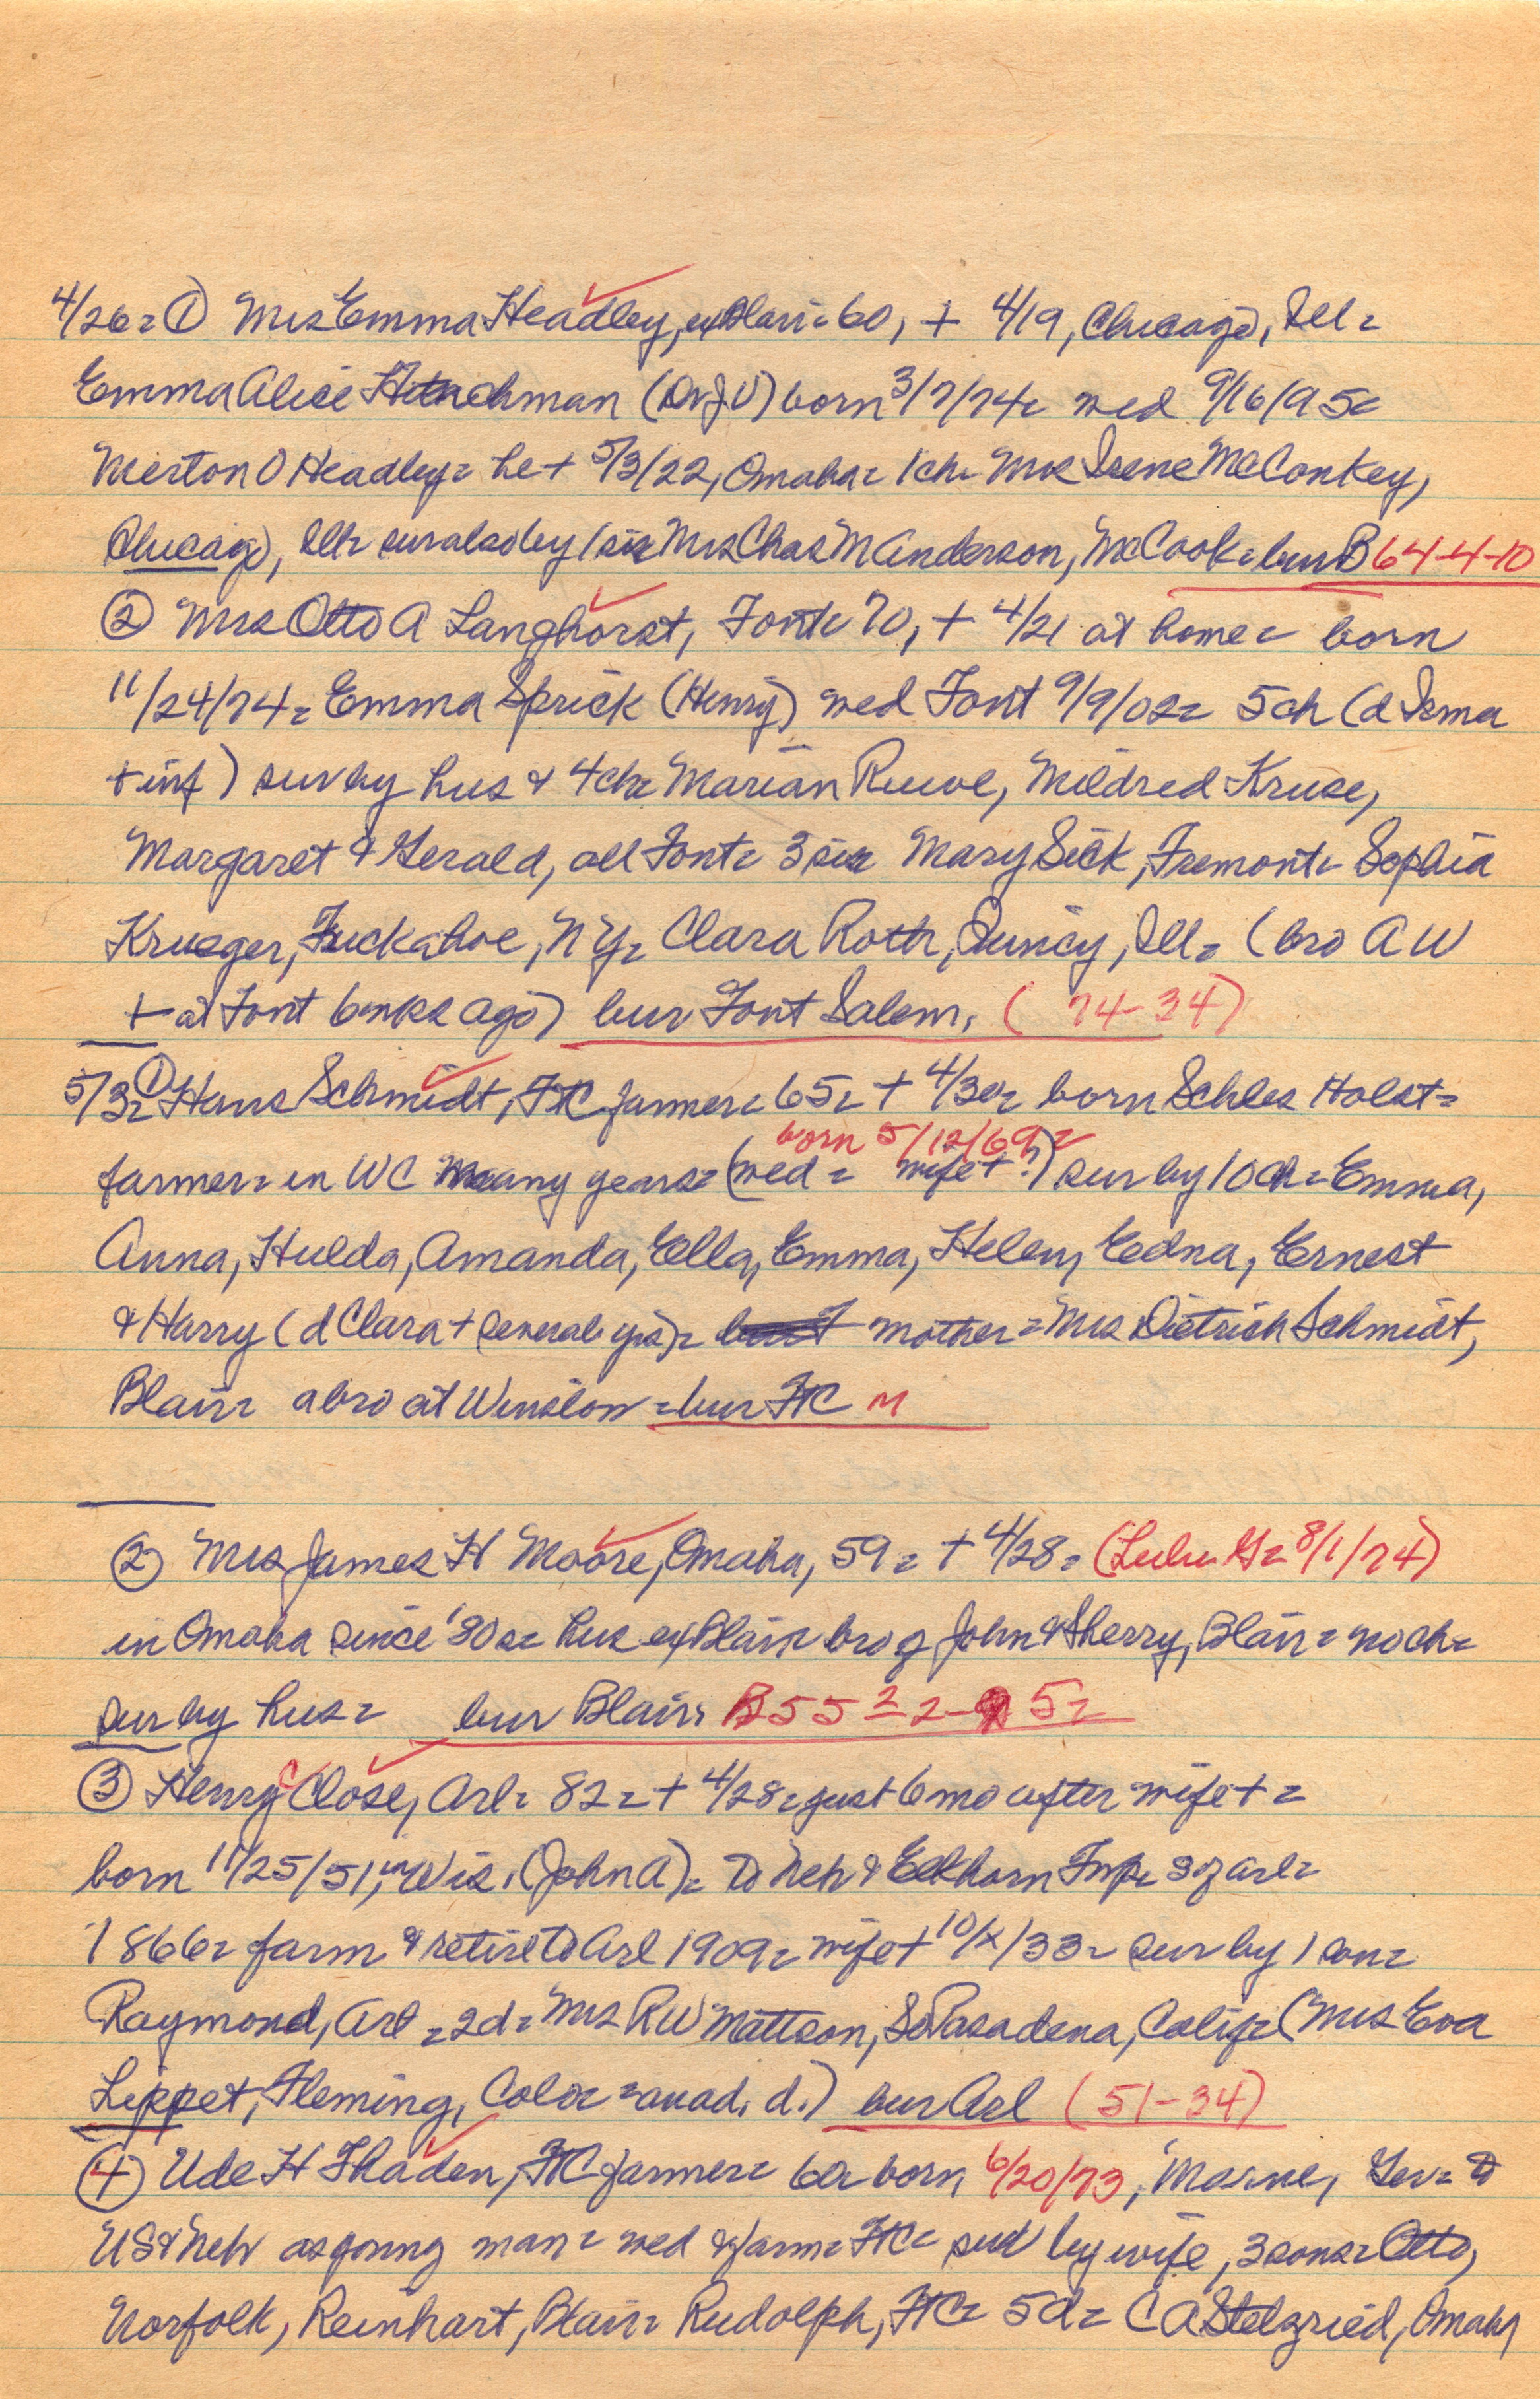 4/26= ① Mrs Emma Headley, exBlair= 60, + 4/19, Chicago, Ill=
Emma Alice Hinchman (Dr J V) born 3/7/74= wed 9/16/95=
Merton O Headley= he + 5/3/22, Omaha= 1ch= Mrs Irene McConkey,
Chicago, Ill= sur also by 1 sis Mrs Chas M Anderson, McCook= bur B 64-4-10
② Mrs Otto A Langhorst, Font= 70, + 4/21 at home= born
11/24/74= Emma Sprick (Henry) wed Font 9/9/02= 5ch (d Irma
+ inf) sur by hus & 4ch= Marian Ruwe, Mildred Kruse,
Margaret & Gerald, all Font= 3 sis Mary Sick, Fremont= Sophia
Krueger, Tuckahoe, N Y= Clara Roth, Quincy, Ill= (bro A W
+ at Font 6 wks ago) bur Font Salem. (74-34)
5/3= ① Hans Schmidt, FtC farmer= 65= + 4/30= born Schles Holst=
born 5/12/69=
farmer= in WC many years= (wed = wife + ?) sur by 10ch= Emma,
Anna, Hulda, Amanda, Ella, Emma, Helen, Edna, Ernest
& Harry (d Clara + several yrs)= mother= Mrs Dietrich Schmidt,
Blair= a bro at Winslow= bur FtC M
② Mrs James H Moore, Omaha, 59= + 4/28= (Lulu G= 8/1/74)
in Omaha since '80s= hus exBlair= bro of John & Sherry, Blair= no ch=
sur by hus= bur Blair. B 55=2-5=
③ Henry C Close, Arl= 82= + 4/28= just 6 mo after wife + =
born 11/25/51, in Wis. (John A)= to Neb & Elkhorn Twp= S of Arl=
1866= farm & retire to Arl 1909= wife + 10/x/33= sur by 1 son=
Raymond, Arl= 2d= Mrs RW Mattson, So Pasadena, Calif= (Mrs Eva
Lippet, Fleming, Colo= = an ad. d.) bur Arl (51-34)
④ Ude H Thaden, FtC farmer= 60= born 6/20/73, Marne, Ger= to
US & Neb as young man= wed & farm= FtC= sur by wife, 3 sons= Otto,
Norfolk, Reinhart, Blair= Rudolph, FtC= 5d= C A Stelzried, Omaha,